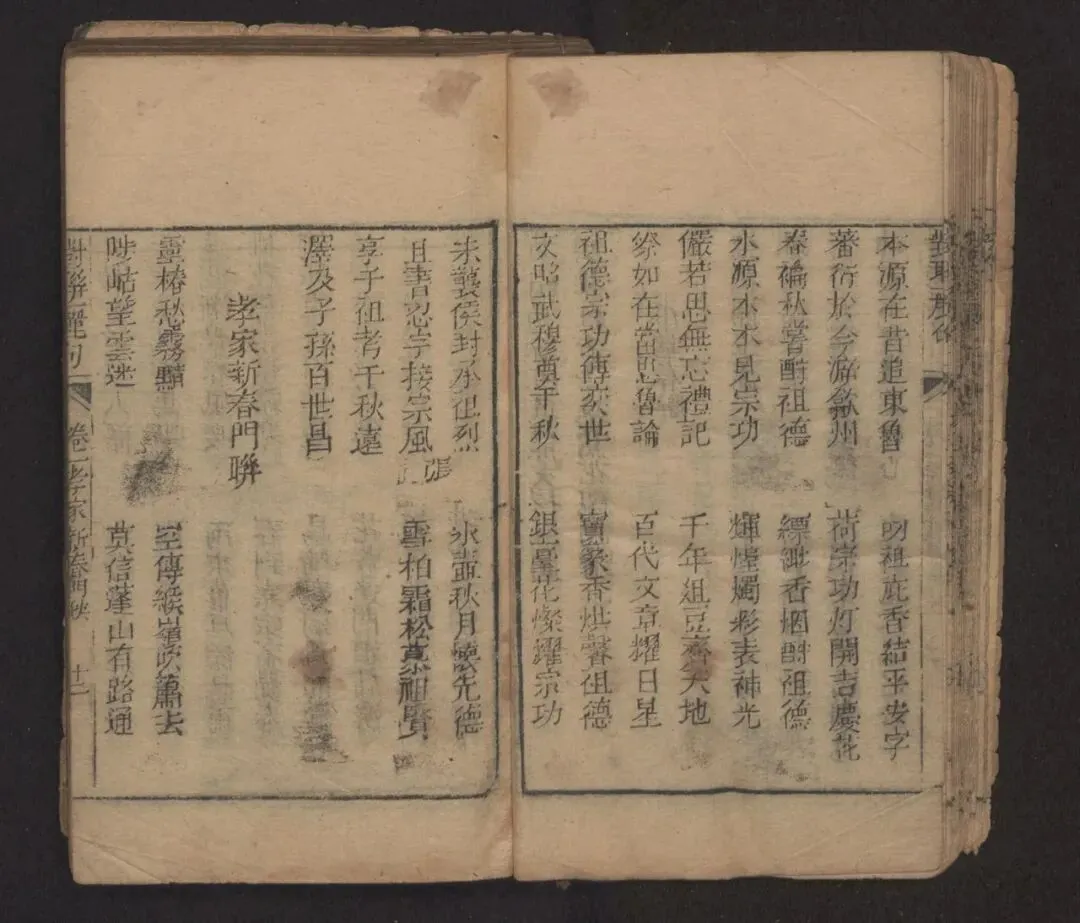 對聯麗句
本源在昔追東魯 明祖庇香結平安字
蕃衍於今溯歙州 荷宗功灯開吉慶花
春禴秋嘗酧祖德 縹緲香烟酧祖德
水源木本見宗功 輝煌燭彩表神光
儼若思無忘禮記 千年俎豆齊天地
祭如在當思魯論 百代文章耀日星
祖德宗功傳奕世 寶篆香烘馨祖德
文昭武穆奠千秋 銀臺花燦耀宗功
未襲侯封承祖烈 冰壺秋月懷先德
且書忍字接宗風 張 雪柏霜松慕祖賢
享子祖考千秋遠
澤及子孫百世昌
孝家新春門聯
靈椿愁霧黯 空傳緱嶺吹蕭去
陟岵望雲迷 莫信蓬山有路通
對聯麗句 卷一 孝家新春門聯 十二